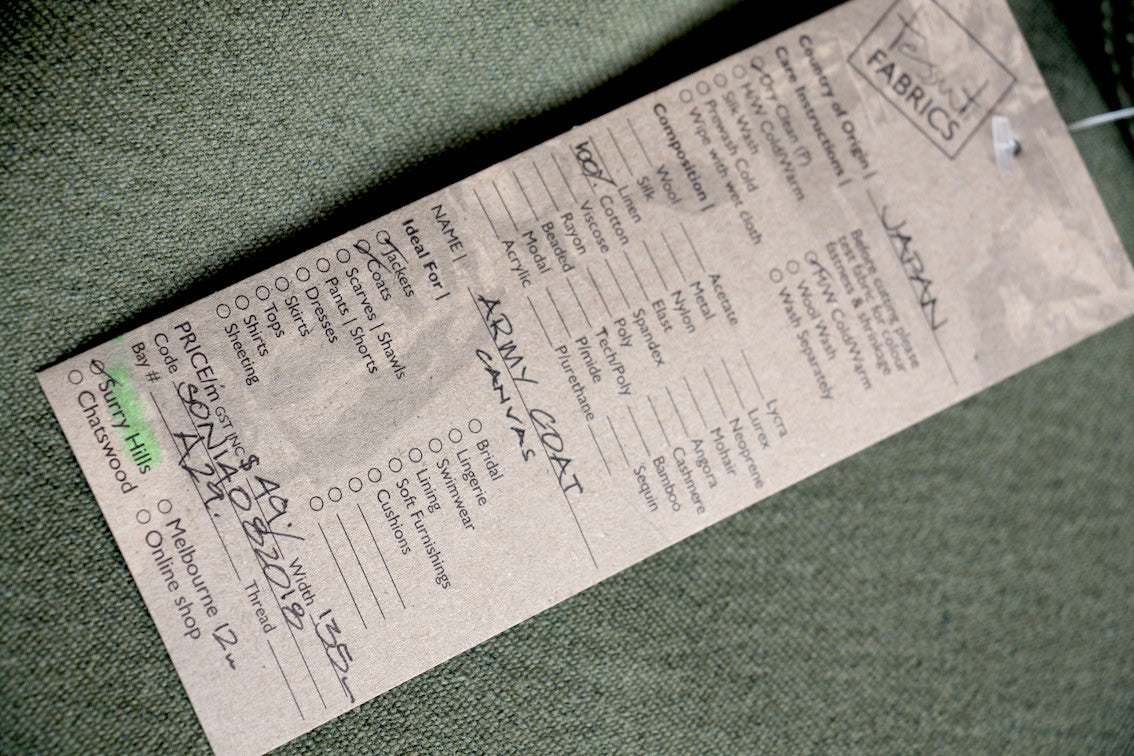 Tessuti
FABRICS
Country of Origin | JAPAN
Care Instructions |
Dry Clean (P)
H/W Cold/Warm
Silk Wash
Prewash Cold
Wipe with wet cloth
Before cutting please
test fabric for colour
fastness & shrinkage
H/W Cold/Warm
Wool Wash
Wash Separately
Composition |
Wool
Silk
Linen
100% Cotton
Viscose
Rayon
Beaded
Modal
Acrylic
Acetate
Metal
Nylon
Elast
Spandex
Poly
Tech/Poly
P/mide
P/urethane
Lycra
Lurex
Neoprene
Mohair
Angora
Cashmere
Bamboo
Sequin
NAME | ARMY COAT
CANVAS
Ideal For |
Jackets
Coats
Scarves | Shawls
Pants | Shorts
Dresses
Skirts
Tops
Shirts
Sheeting
Bridal
Lingerie
Swimwear
Lining
Soft Furnishings
Cushions
PRICE/m GST INC $ 49/. Width 135cm
Code SON14082018
Bay # A29. Thread
Surry Hills
Chatswood
Melbourne 12m
Online shop